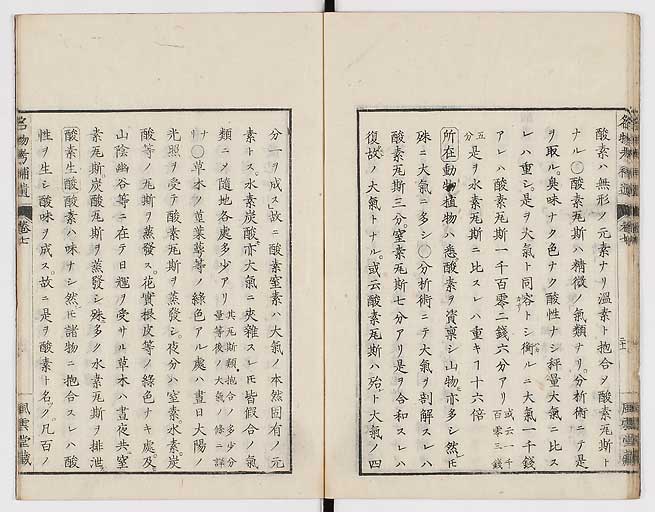 酸素ハ無形ノ元素ナリ溫素ト抱合ヲ酸素瓦斯ト
ナル○酸素瓦斯ハ精微ノ氣類ナリ分析術ニテ是
ヲ取ル臭味ナク色ナク酸性ナシ秤量大氣ニ比ス
レハ重シ是ヲ大氣ト同容トシ衡ルニ大氣一千錢
アレハ酸素瓦斯一千百零二錢六分アリ或云一千百零三錢
五分是ヲ水素瓦斯ニ比スレハ重キヿ十六倍
所在動物植物ハ悉酸素ヲ資稟シ山物亦多シ然𪜈
殊ニ大氣ニ多シ○分析術ニテ大氣ヲ剖解スレハ
酸素瓦斯三分窒素瓦斯七分アリ是ヲ合和スレハ
復故ノ大氣トナル或云酸素瓦斯ハ殆ト大氣ノ四
名物考補遺
卷七
風雲堂藏
分一ヲ成ス故ニ酸素窒素ハ大氣ノ本然固有ノ元
素トス水素炭酸亦大氣ニ夾雜スレ𪜈皆假合ノ氣
類ニメ隨地各處多少アリ其瓦斯類抱合ノ多少分量等後ノ大氣ノ條ニ詳
ナリ○草木ノ莖葉萼等ノ綠色アル處ハ晝日大陽ノ
光照ヲ受テ酸素瓦斯ヲ蒸發シ夜分ハ窒素水素炭
酸等ノ瓦斯ヲ蒸發ス花實根皮等ノ綠色ナキ處及
山陰幽谷等ニ在テ日輝ヲ受サル草木ハ晝夜共窒
素瓦斯炭酸瓦斯ヲ蒸發シ殊多ク水素瓦斯ヲ排泄
酸素生酸酸素ハ味ナシ然𪜈諸物ニ抱合スレハ酸
性ヲ生シ酸味ヲ成ス故ニ是ヲ酸素ト名ク凡百ノ
名物考補遺
卷七
風雲堂藏